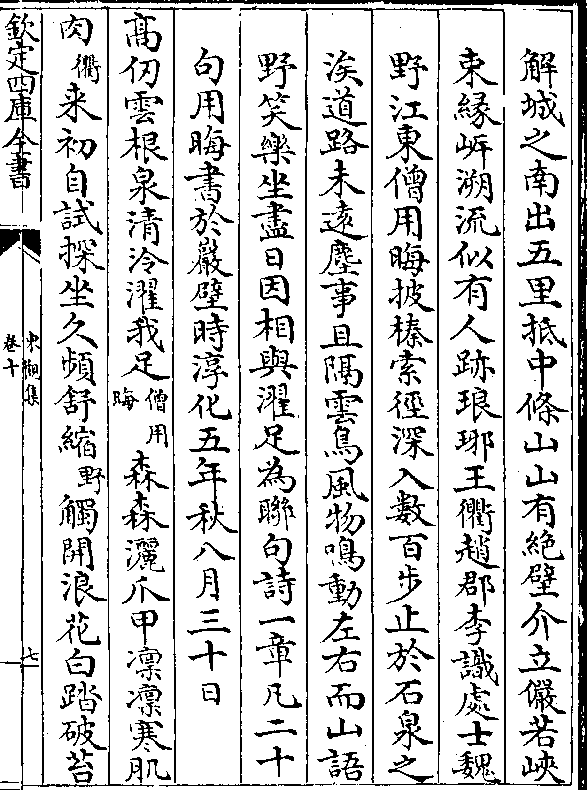 解城之南出五里抵中條山山有絶壁介立儼若峽
束緣岸溯流似有人跡琅琊王衢趙郡李識處士魏
野江東僧用晦披榛索徑深入數百步止於石泉之
涘道路未遠塵事且隔雲鳥風物鳴動左右而山語
野笑樂坐盡日因相與濯足為聯句詩一章凡二十
句用晦書於嚴壁時淳化五年秋八月三十日
高仞雲根泉清泠濯我足僧用晦森森灑爪甲凛凛寒肌
肉衢来初自試探坐久頻舒縮野觸開浪花白踏破苔
欽定四庫全書
東觀集
卷十
七